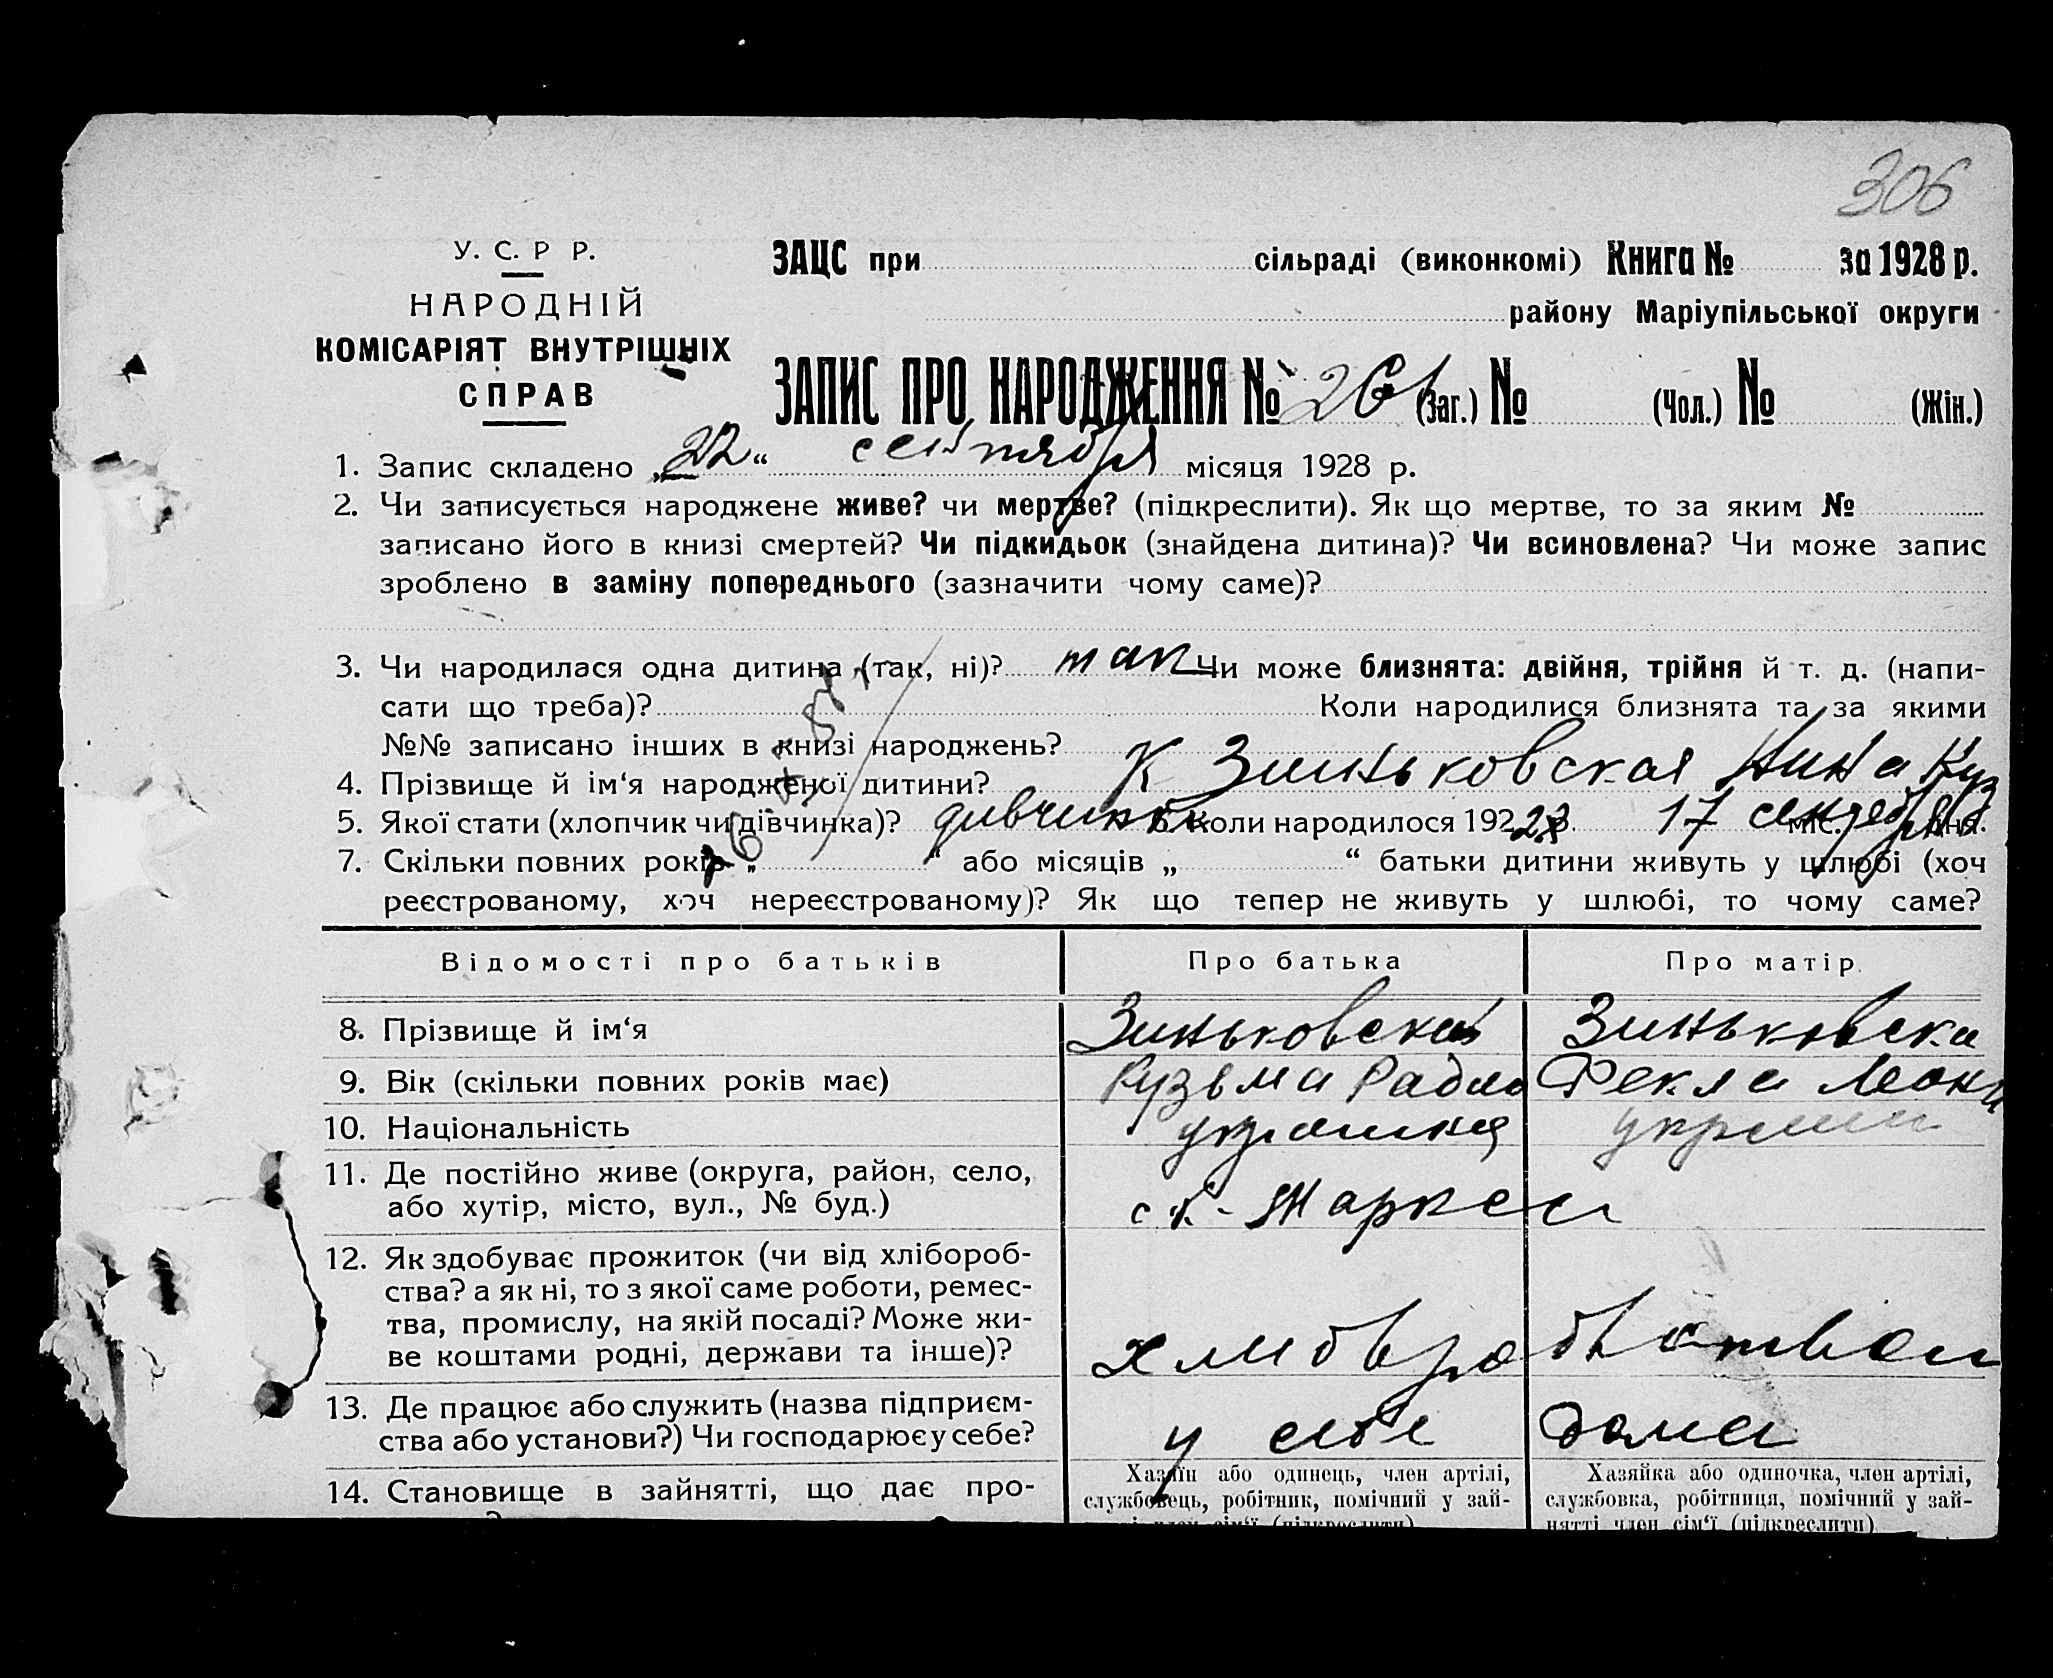 306
У. С. Р Р.
НАРОДНІЙ
КОМІСАРІЯТ ВНУТРІШНІХ
СПРАВ
ЗАЦС при сільраді (виконкомі) Книга № за 1928 р.
району Маріупільської округи
ЗАПИС ПРО НАРОДЖЕННЯ № 261 (Заг.) № (Чол.) № (Жін.)
1. Запис складено „22“ сентября місяця 1928 р.
2. Чи записується народжене живе? чи мертве? (підкреслити). Як що мертве, то за яким №
записано його в книзі смертей? Чи підкидьок (знайдена дитина)? Чи всиновлена? Чи може запис
зроблено в заміну попереднього (зазначити чому саме)?
3. Чи народилася одна дитина (так, ні)? так Чи може близнята: двійня, трійня й т. д. (напи-
сати що треба)? Коли народилися близнята та за якими
№№ записано інших в книзі народжень?
4. Прізвище й ім‘я народженої дитини? Зиньковская Нина Куз
5. Якої стати (хлопчик чи дівчинка)? дивчинка 6. Коли народилося 192 28 р. 17 міс. дня.
7. Скільки повних років „ “ або місяців „ “ батьки дитини живуть у шлюбі (хоч
реєстрованому, хоч нереєстрованому)? Як що тепер не живуть у шлюбі, то чому саме?
Відомості про батьків Про батька Про матір
8. Прізвище й ім‘я Зиньковская Зиньковска
9. Вік (скільки повних років має) Кузьма Фекла
10. Національність
11. Де постійно живе (округа, район, село,
або хутір, місто, вул., № буд.)
12. Як здобуває прожиток (чи від хлібороб-
ства? а як ні, то з якої саме роботи, ремес-
тва, промислу, на якій посаді? Може жи-
ве коштами родні, держави та інше)?
13. Де працює або служить (назва підприєм-
ства або установи?) Чи господарює у себе? у себе дома
14. Становище в зайнятті, що дає про-
Хазяїн або одинець, член артілі,
службовець, робітник, помічний у зай-
нятті член сім‘ї (підкреслити)
Хазяйка або одиночка, член артілі,
службовка, робітниця, помічний у зай-
нятті член сім‘ї (підкреслити)